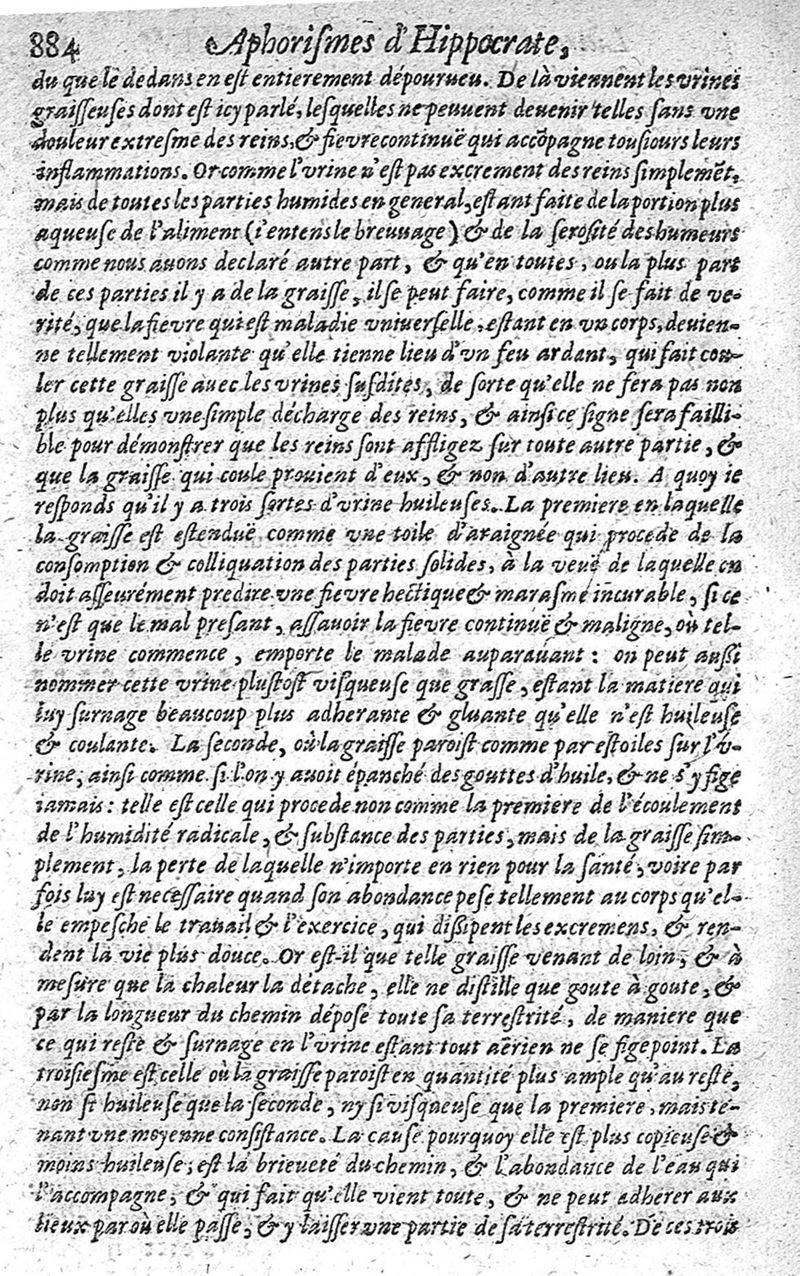 884 Aphoriſmes d'Hippocrate,
du que le dedans en eſt entierement dépourueu. De là viennent les vrines
graiſſeuſes dont eſt icy parlé, leſquelles ne peuuent deuenir telles ſans vne
douleur extreſme des reins, & fievre continuë qui accõpagne touſiours leurs
inflammations. Or comme l'vrine n'eſt pas excrement des reins ſimplemẽt,
mais de toutes les parties humides en general, eſtant faite de la portion plus
aqueuſe de l'aliment (i'entens le breuuage) & de la feroſité des humeurs
comme nous auons declaré autre part, & qu'en toutes, ou la plus part
de ces parties il y a de la graiſſe, il ſe peut faire, comme il ſe fait de ve-
rité, que la fievre qui eſt maladie vniuerſelle, eſtant en vn corps, deuien-
ne tellement violante qu'elle tienne lieu d'vn feu ardant, qui fait cou-
ler cette graiſſe auec les vrines ſuſdites, de ſorte qu'elle ne ſera pas non
plus qu'elles vne ſimple décharge des reins, & ainſi ce ſigne ſera failli-
ble pour démonſtrer que les reins ſont affligez ſur toute autre partie, &
que la graiſſe qui coule prouient d'eux, & non d'autre lieu. A quoy ie
reſponds qu'il y a trois ſortes d'vrine huileuſes. La premiere en laquelle
la graiſſe eſt eſtenduë comme vne toile d'araignée qui procede de la
conſomption & colliquation des parties ſolides, à la veuë de laquelle on
doit aſſeurément predire vne fievre hectique & maraſme incurable, ſi ce
n'eſt que le mal preſant, aſſauoir la fievre continuë & maligne, où tel-
le vrine commence, emporte le malade auparauant : on peut auſſi
nommer cette vrine pluſtoſt viſqueuſe que graſſe, eſtant la matiere qui
luy ſurnage beaucoup plus adherante & gluante qu'elle n'eſt huileuſe
& coulante. La ſeconde, où la graiſſe paroiſt comme par eſtoiles ſur l'v-
rine, ainſi comme ſi l'on y auoit épanché des gouttes d'huile, & ne s'y fige
iamais : telle eſt celle qui procede non comme la premiere de l'écoulement
de l'humidité radicale, & ſubſtance des parties, mais de la graiſſe ſim-
plement, la perte de laquelle n'importe en rien pour la ſanté, voire par
fois luy eſt neceſſaire quand ſon abondance peſe tellement au corps qu'el-
le empeſche le trauail & l'exercice, qui diſſipent les excremens, & ren-
dent la vie plus douce. Or eſt-il que telle graiſſe venant de loin, & à
meſure que la chaleur la détache, elle ne diſtille que goute à goute, &
par la longueur du chemin dépoſe toute ſa terreſtrité, de maniere que
ce qui reſte & ſurnage en l'vrine eſtant tout aërien ne ſe fige point. La
troiſieſme eſt celle où la graiſſe paroiſt en quantité plus ample qu'au reſte,
non ſi huileuſe que la ſeconde, ny ſi viſqueuſe que la premiere, mais te-
nant vne moyenne conſiſtance. La cauſe pourquoy elle eſt plus copieuſe &
moins huileuſe, eſt la brieueté du chemin, & l'abondance de l'eau qui
l'accompagne, & qui fait qu'elle vient toute, & ne peut adherer aux
lieux par où elle paſſe, & y laiſſer vne partie de ſa terreſtrité. De ces trois